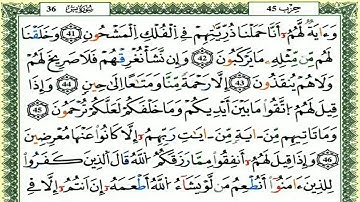 حزب 45 سورة يس 36
وَءَايَةٌ لَّهُمُۥٓ أَنَّا حَمَلْنَا ذُرِّيَّٰتِهِمْ فِى ٱلْفُلْكِ ٱلْمَشْحُونِ 41 وَخَلَقْنَا
لَهُم مِّن مِّثْلِهِۦ مَا يَرْكَبُونَ 42 وَإِن نَّشَأْ نُغْرِقْهُمْ فَلَا صَرِيخَ لَهُمْ
وَلَا هُمْ يُنقَذُونَ 43 إِلَّا رَحْمَةً مِّنَّا وَمَتَٰعًا إِلَىٰ حِينٍ 44 وَإِذَا
قِيلَ لَهُمُ ٱتَّقُوا۟ مَا بَيْنَ أَيْدِيكُمْ وَمَا خَلْفَكُمْ لَعَلَّكُمْ تُرْحَمُونَ 45
وَمَا تَاتِيهِم مِّنَ ءَايَةٍ مِّنَ ءَايَٰتِ رَبِّهِمُۥٓ إِلَّا كَانُوا۟ عَنْهَا مُعْرِضِينَ
46 وَإِذَا قِيلَ لَهُمُۥٓ أَنفِقُوا۟ مِمَّا رَزَقَكُمُ ٱللَّهُ قَالَ ٱلَّذِينَ كَفَرُوا۟
لِلَّذِينَ ءَامَنُوٓا۟ أَنُطْعِمُ مَن لَّوْ يَشَآءُ ٱللَّهُ أَطْعَمَهُۥٓ إِنَ ٱنتُمُۥٓ إِلَّا فِى